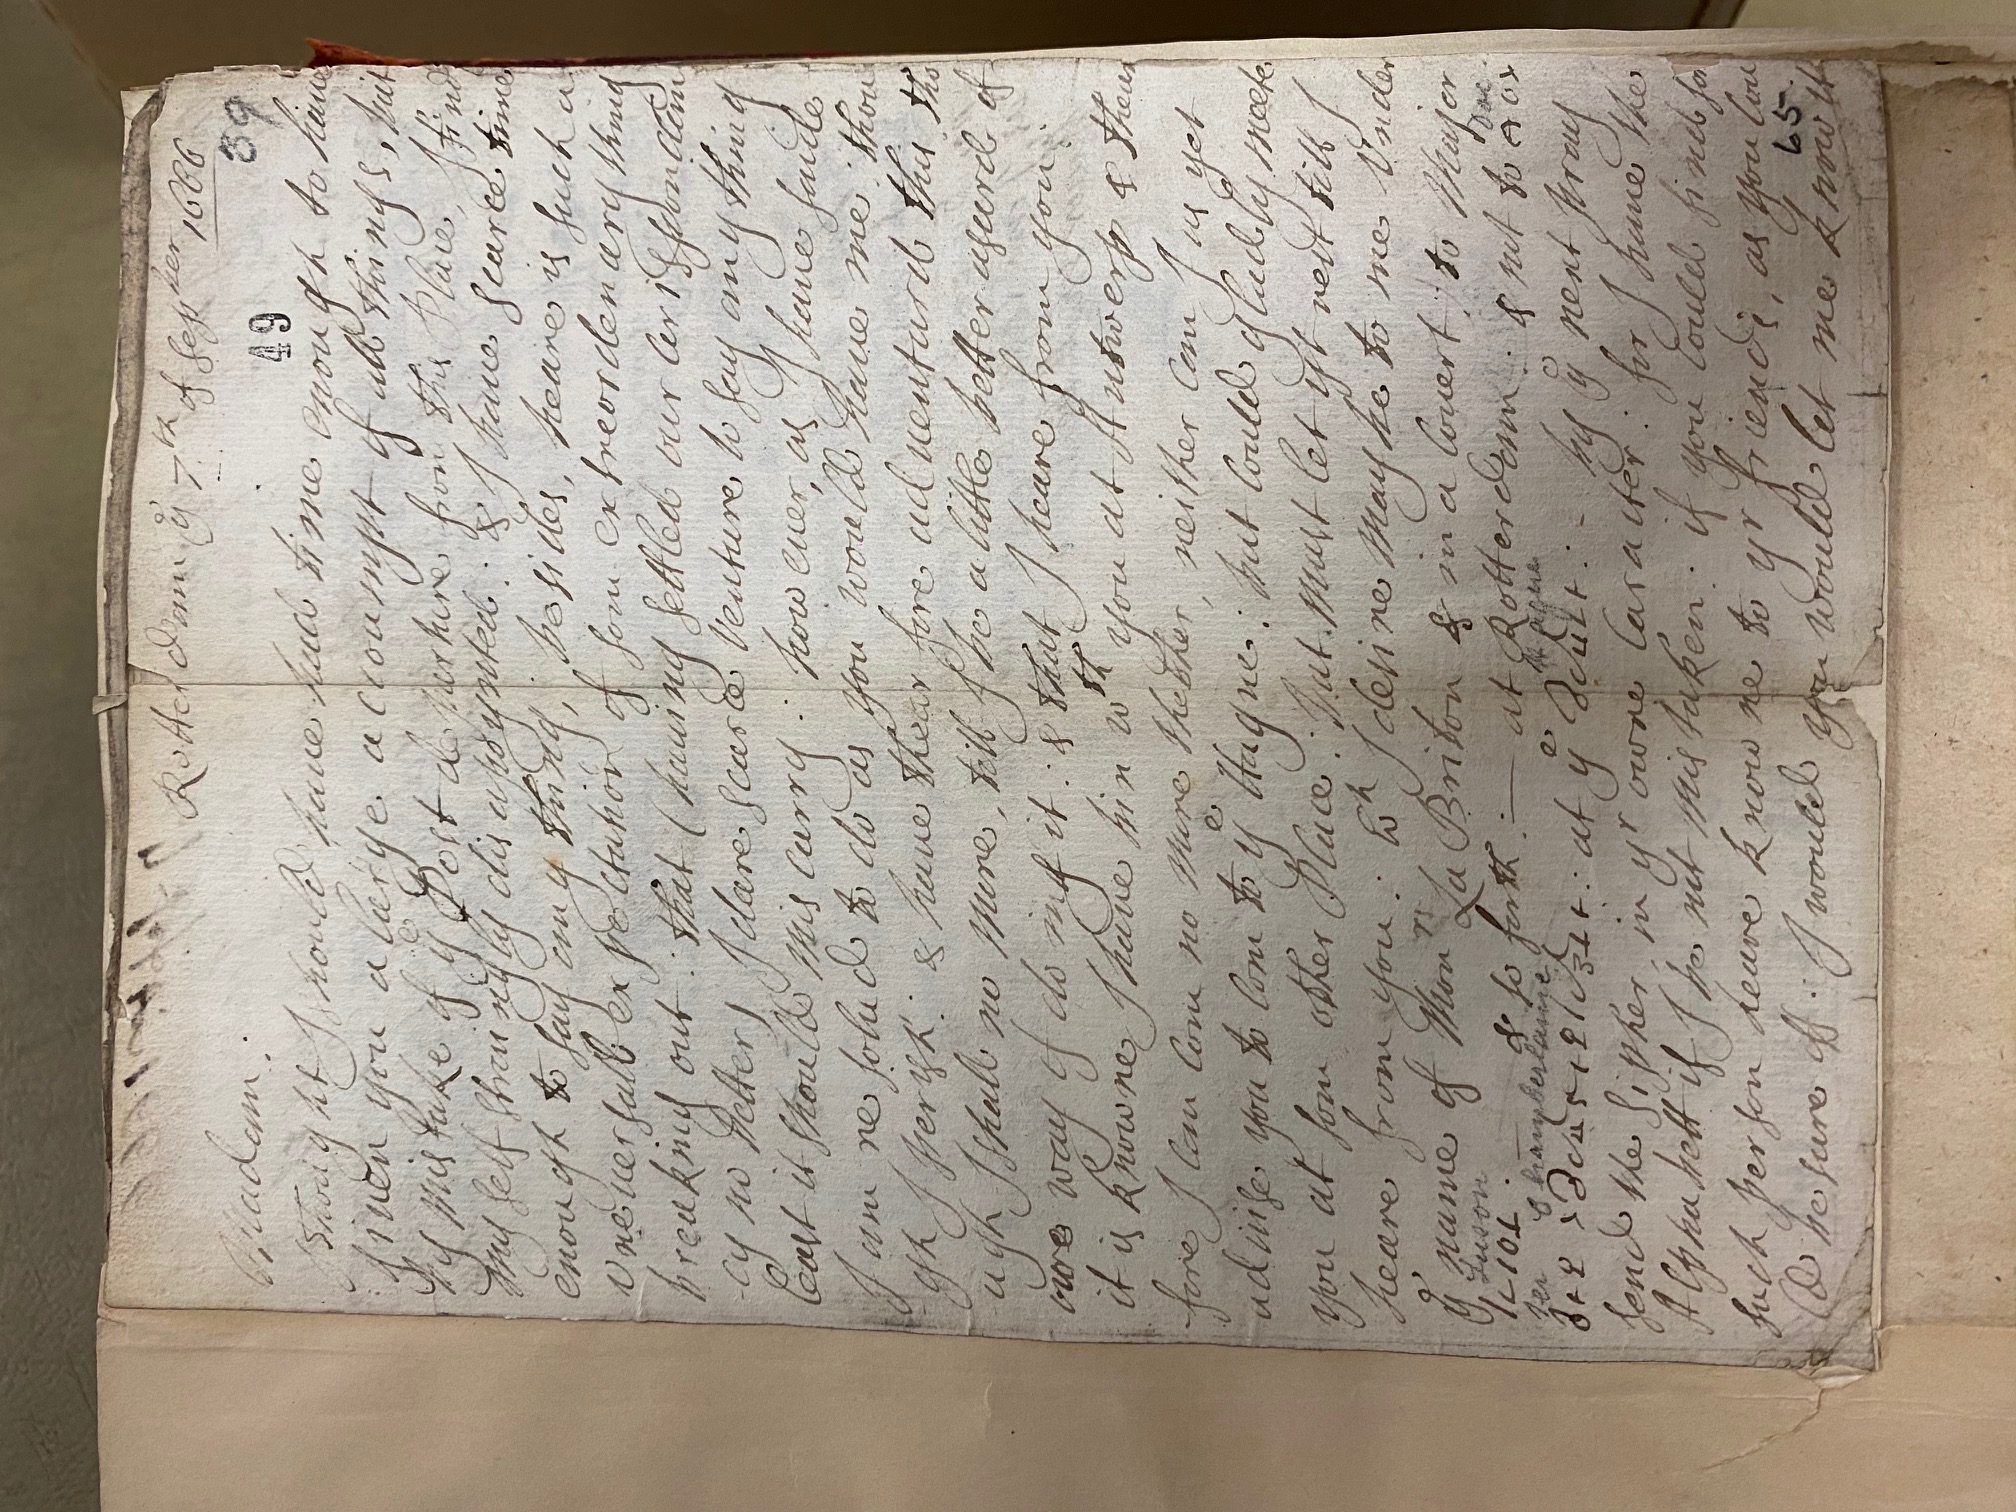 Rotterdam ye 7th of Septber 1666
39
49
Madam.
I thought I should haue had time enough to haue
giuen you a large accoumpt of all things, but
by mistake of ye Post de parture from this place, I find
my self strangly disapoynted: & I haue scarce time
enough to say any thing, besides, heare is such a
vneuersall expectation of som extreordenary thing
breaking out: that (hauing settled our corispondan
-cy no better) I dare scarce venture to say any thing
least it should miscarry: how euer, as I haue saide
I am resolud to do as you would haue me: thou
-gh I perysh: & haue thearfore aduenturd this tho
ugh I shall no more, till I be a little better asurd of
ovre way of doing it: & that I heare from you:
it is knowne I haue bin wth you at Antwerp & thear
fore I can com no more thether, neither can I as yet
aduise you to com to ye Hague: but could gladly meete
you at som other Place: but must let yt rest till I
heare from you: wch I desire may be to me vnder
ye name of Monrs La Briton & in a couert to Major
& so forth :— at Rotterdam: & not to
at ye
send the Sipher in yr owne Caracter: for I haue the
Alphabett if I be not mistaken: if you could find som
such person heare knowne to yr friends, as you cou
d be sure of: I would you would let me know it
65